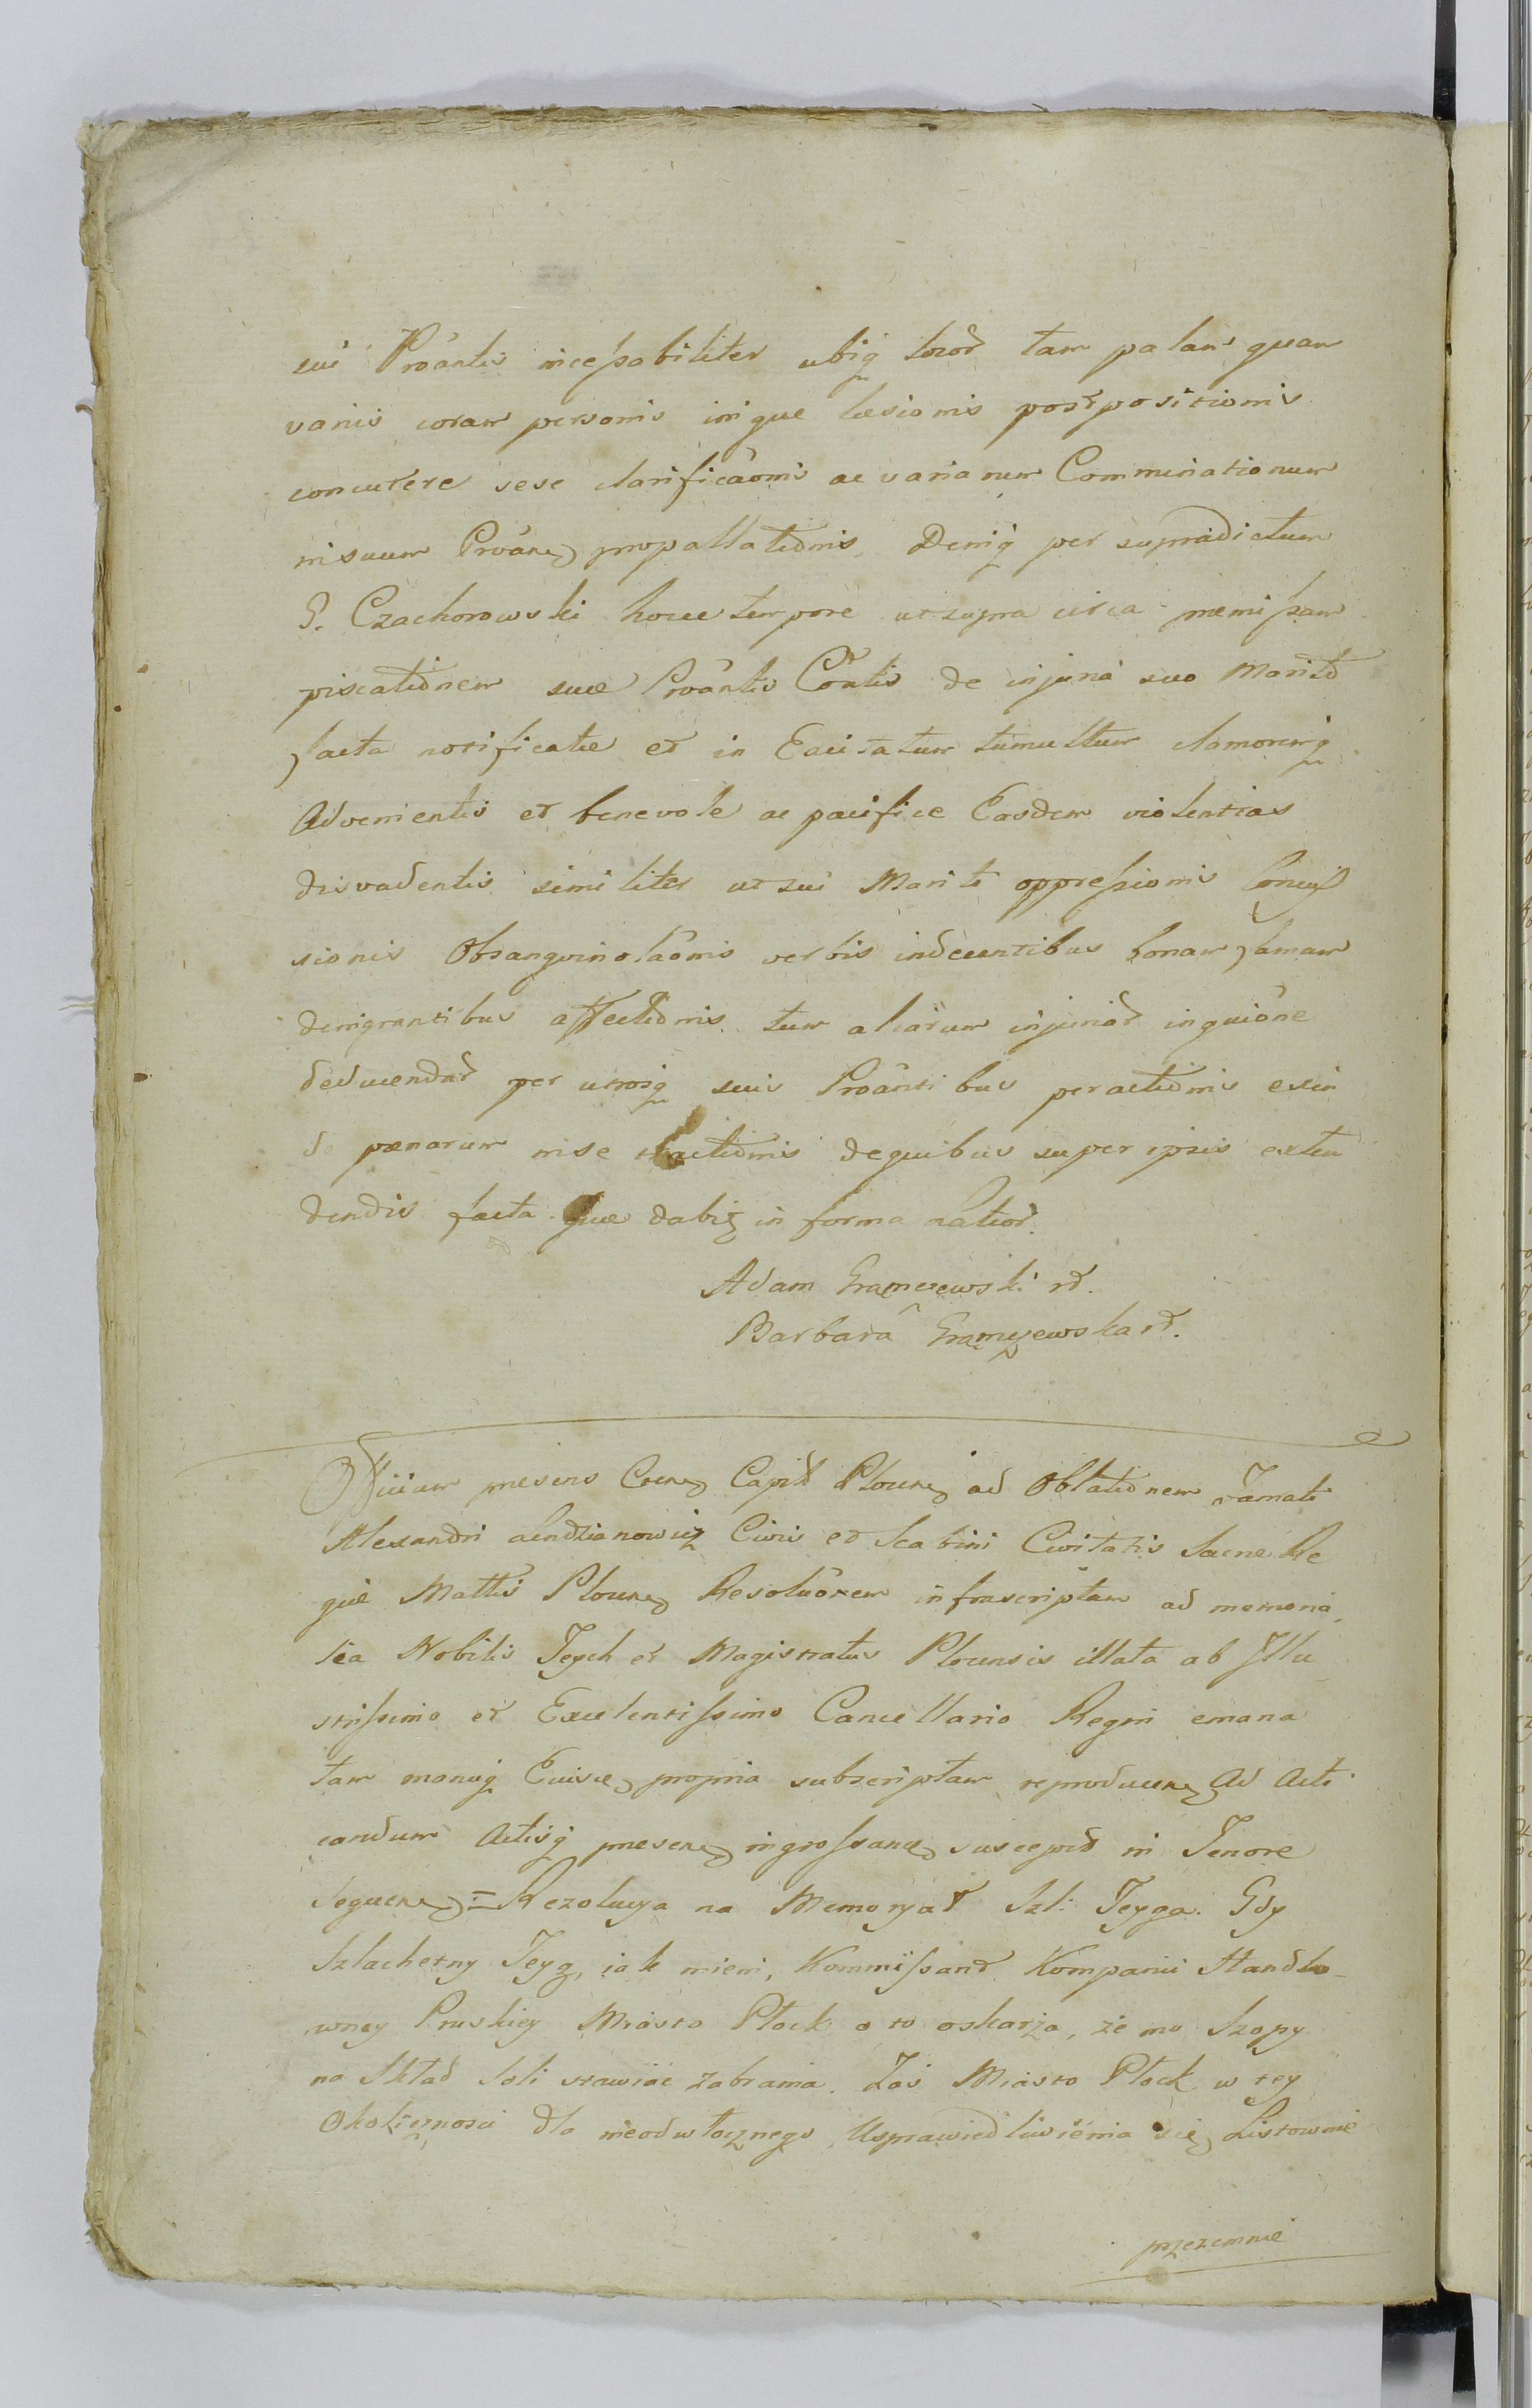 sui Proântis incessabiliter ubiq locor̃ tam palam quam
variis coram personis in que læsionis postpositionis
concutere sese clarificâonis ac variarum Comminationum
in suum Proâne propallationis Deniq per supradictum
G. Czachorowski hocce tempore ut supra circa præmissam
piscationem suæ Proântis Cortis de injuria suo Marito
facta notificatæ et in Excitatum tumultum clamoremq
Advenientis et benevole ac pacifice Easdem violentias
disvadentis similiter ut sui Mariti oppressionis Concus
sionis Obsanguinolâonis verbis indecentibus bonam famam
denigrantibus affectionis tum aliarum injuriar̃ in quiône
deducendar̃ per utrosq suis Proântibus peractionis exin
de pænarum in se contractionis de quibus super ipsis exten
dendis facta que dabit in forma latior̃.
Adam Gramczewski rd.
Barbara Gramczewska rd.
Officium præsens Crense Capitl Plocense ad Oblationem Famati
Alexandri Civis et Scabini Civitatis Sacræ Re
giæ Mattis Plocens Resoluônem infrascriptam ad memoria
lia Nobilis Teych et Magistratus Plocensis illata ab Illu
strissimo et Excelentissimo Cancellario Regni emana
tam manuq Ejusdem propria subscriptam reproducens Ad Acti
candum Actisq præsent ingrossand suscepit in Tenore
Sequen = Rezolucya na Memoryał Szl: Teyga. Gdy
Szlachetny Teyg, iak mieni, Kommissarz Kompanii Handlo
wney Pruskiey Miasto Płock o to oskarża, że mu Szopy
na Skład Soli stawiać zabrania. Zaś Miasto Płock w tey
Okoliczności dla nieodwłocznego Usprawiedliwienia się Listownie
przezemnie